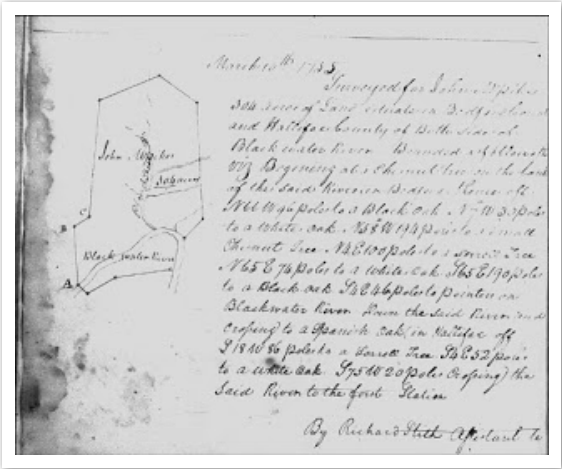 March 10th 1755
Surveyed for John
304 acres of Land situate in Bedford
and Hallifax County of Both Sides of
Black water River Bounded as followeth
Viz Begining at a Chesnut tree on the bank
of the said River in Bedford Thence off
N66W 96 poles to a Black Oak W 30 poles
to a White Oak 194 poles to a small
Chesnut Tree N4E 100 poles to a Sorrel Tree
N65E 74 poles to a White Oak S65E 190 poles
to a Black Oak S4E 46 poles to pointers on
Blackwater River Down the said River and
Crossing to a Spanish Oak in Hallifax off
S18W 86 poles to a Sorrell Tree S4E 52 poles
to a white Oak S75W 20 poles Crossing the
Said River to the first Station
By Richard Stith
John
304 acres
C
B
Black water River
A